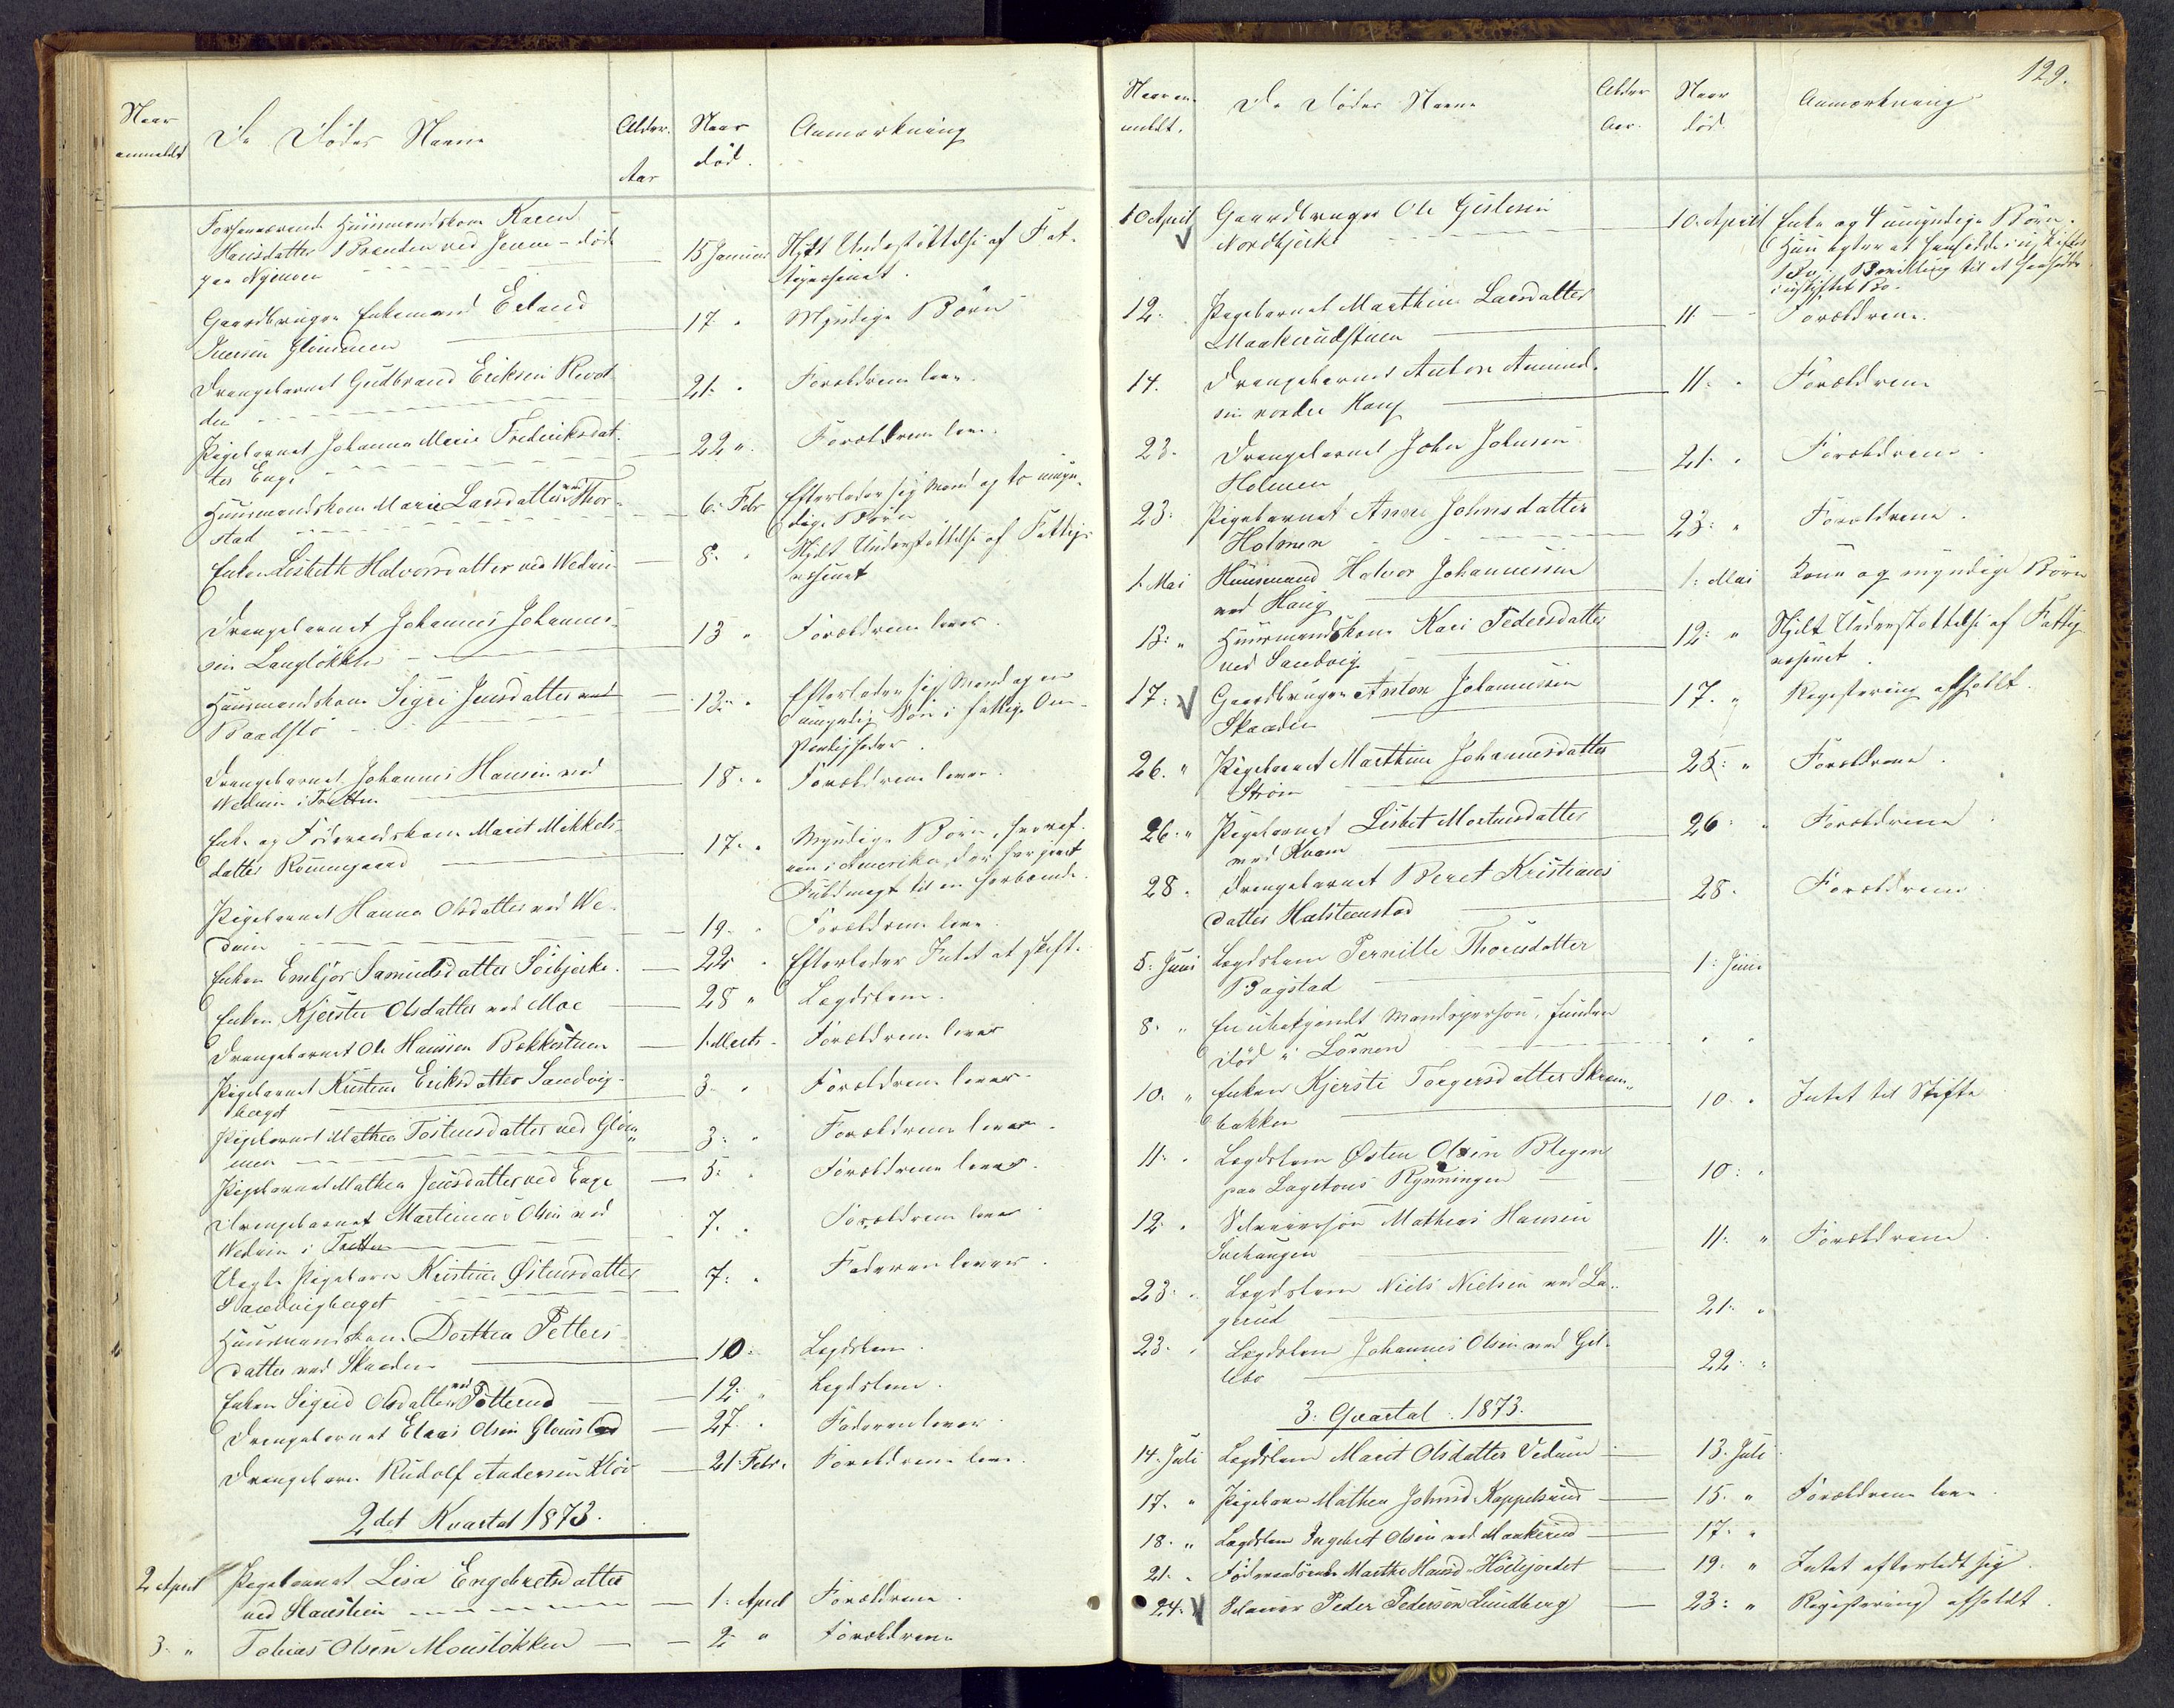 Naar
anmeldt
De Dødes Navne
Alder.
Aar
Naar
død.
Anmærkning
Forhenværende Huusmandskone Karen
Hansdatter Brænden ved Jevne - død
paa
15 Januar
Nydt Understøttelse af Fat-
tigvæsenet.
Gaardbruger Enkemand Erland
Iversen Glimmen
17 "
Myndige Børn
Drengebarnet Gudbrand Eriksen Revol-
den
21: "
Forældrene leve.
Pigebarnet Johanna Marie Frederiksdat-
ter Enge
22 "
Forældrene leve.
Huusmandskone Marie Larsdatter ved Thor-
stad
6: Febr
Efterlader sig Mand og to umyn-
dige Børn
Enken Lisbeth Halvorsdatter ved Wedum
8: "
Nydt Understøttelse af Fattig-
væsenet
Drengebarnet Johannes Johannes-
sen Langløkken
13 "
Forældrene lever.
Huusmandskone Sigri Jensdatter ved
Baadstø
13: "
Efterlader sig Mand og en
umyndig Søn i fattige Om-
stændigheder.
Drengebarnet Johannes Hansen ved
Wedum i Tretten
18. "
Forældrene lever.
Enke og Føderaadskone Marit Mikkels-
datter Rommegaard
17. "
Myndige Børn, hvoraf
een i Amerika, der har givet
Fuldmagt til en herboende.
Pigebarnet Hanna Olsdatter ved We-
dum
19. "
Forældrene leve.
Enken Embjør Samuelsdatter Sørbjerke.
22 "
Efterlader Intet at skifte
Enken Kjersti Olsdatter ved Moe
28 "
Lægdslem.
Drengebarnet Ole Hansen Bækkestuen
1. Marts
Forældrene lever
Pigebarnet Kristine Eriksdatter Sandvig-
haget
3. "
Forældrene lever.
Pigebarnet Mathea Tostensdatter ved Glim-
men
3: "
Forældrene lever.
Pigebarnet Mathea Jensdatter ved Enge
5: "
Forældrene lever.
Drengebarnet Martinus Olsen ved
Wedum i Tretten
7. "
Forældrene lever.
Uægte Pigebarn Kristine Østensdatter
Sandvighaget
7: "
Faderen lever.
Huusmandskone Dorthea Petters-
datter ved Skaaden
10:
Lægdslem.
Enken Sigrid Olsdatter ved Potterud
12: "
Lægdslem.
Drengebarnet Elias Olsen Glomstad
27. "
Faderen lever.
Drengebarn Rudolf Andersen Kløv
21: Febr.
Forældrene leve.
2det Kvartal 1873.
2 April
Pigebarnet Lisa Engebretsdatter
ved Staustein
1: April
Forældrene.
3: "
Tobias Olsen Monsløkken
2 "
Forældrene
129.
Naar an-
meldt.
De Dødes Navne
Alder
Aar.
Naar
død.
Anmærkning
10 April
Gaardbruger Ole Gislesen
Nordbjerke
10. April
Enke og 4 umyndige Børn.
Hun agter at hensidde i uskiftet
Bo. Bevilling til at hensidde
i uskiftet Bo.
12:
Pigebarnet Marthine Larsdatter
Maakerudstuen
11 -
Forældrene.
14.
Drengebarnet Anton Amund-
sen nordre Haug
11: "
Forældrene
23.
Drengebarnet John Johnsen
Holmen
21. "
Forældrene.
23:
Pigebarnet Anne Johnsdatter
Holmen
23: "
Forældrene.
1. Mai
Huusmand Halvor Johannessen
ved Haug
1: Mai
Kone og myndige Børn
13: "
Huusmandskone Kari Pedersdatter
ved Sandvig
12: "
Nydt Understøttelse af Fattig-
væsenet.
17:
Gaardbruger Anton Johannessen
Skaaden
17. "
Registrering afholdt.
26. "
Pigebarnet Marthine Johannesdatter
Strøm
25: "
Forældrene.
26: "
Pigebarnet Lisbet Mortensdatter
ved Kvam
26: "
Forældrene
28.
Drengebarnet Beret Kristians-
datter Halsteenstad
28.
Forældrene
5: Juni
Lægdslem Pernille Thoresdatter
Bagstad
1: Juni
8. "
En ubekjendt Mandsperson, funden
død i Losnen
" "
10. "
Enken Kjersti Torgersdatter Skram-
bakken
10. "
Intet til Skifte
11: "
Lægdslem Østen Olsen Blegen
paa Lagetons Rynningen
10: "
12. "
Selveiersøn Mathias Hansen
Sørhaugen
11: "
Forældrene.
23: "
Lægdslem Niels Nielsen ved La-
gerud
21: "
23. "
Lægdslem Johannes Olsen ved Gil-
lebo
22: "
3: Qvartal. 1873.
14. Juli
Lægdslem Marit Olsdatter Vedum
13. Juli
17. "
Pigebarn Mathea Johnsd. Koppelsrud
15. "
Forældrene leve.
18. "
Lægdslem Ingebret Olsen ved Maakerud
17: "
21. "
Føderaadsenke Marthe Hansd. Høiehjordet
19: "
Intet efterladt sig.
24:
Selveier Peder Pedersen Lundberg
23: "
Registrering afholdt.